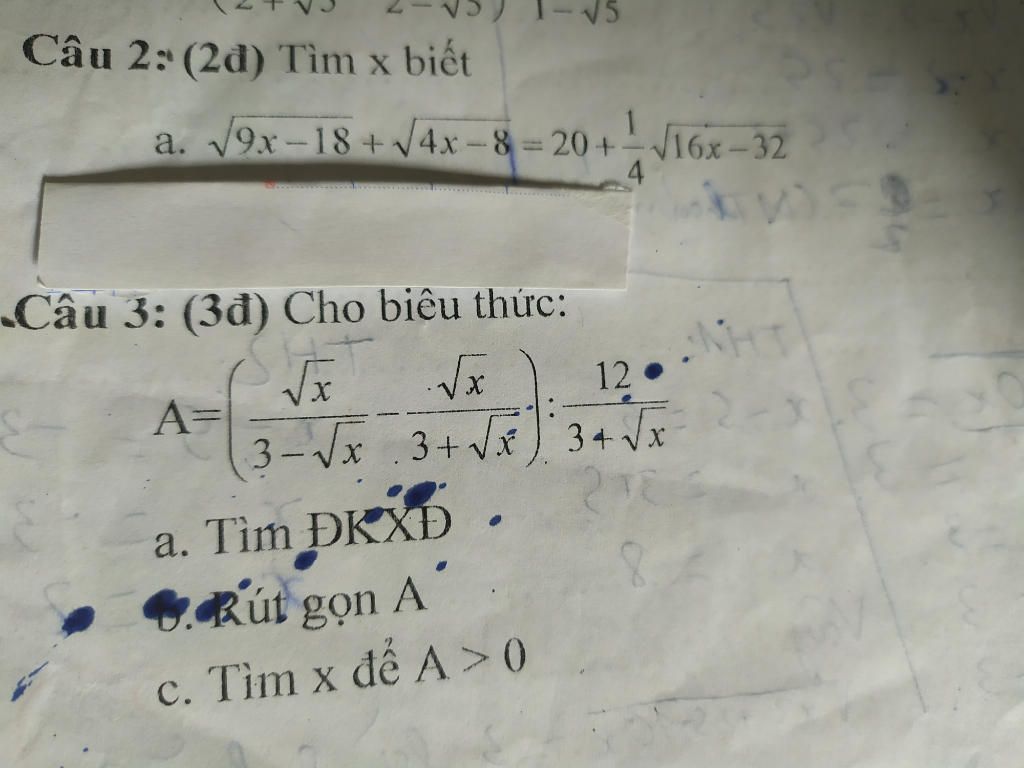 (2+√5 2−√5) 1−√5
Câu 2: (2đ) Tìm x biết
a. √(9x−18) + √(4x−8) = 20 + 1/4 √(16x−32)
Câu 3: (3đ) Cho biêu thức:
A=(√x/(3−√x) − √x/(3+√x)) : 12/(3+√x)
a. Tìm ĐKXĐ
b. Rút gọn A
c. Tìm x để A > 0